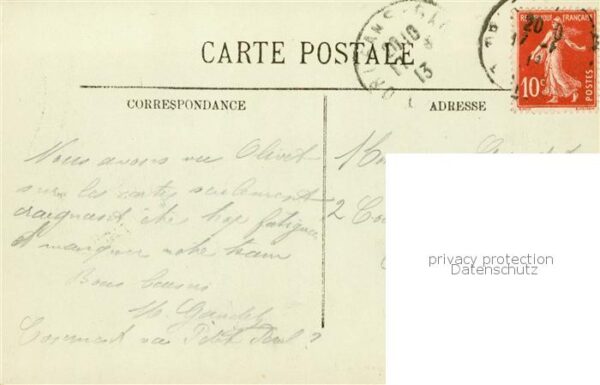 CARTE POSTALE
CORRESPONDANCE
ADRESSE
REPUBLIQUE FRANÇAISE
10c
POSTES
20 10
13
Nous avons vu Olivet
sur les cartes seulement
craignant être trop fatigués
et manquer notre train
Bons baisers
Comment va Petit Paul ?
2
privacy protection
Datenschutz